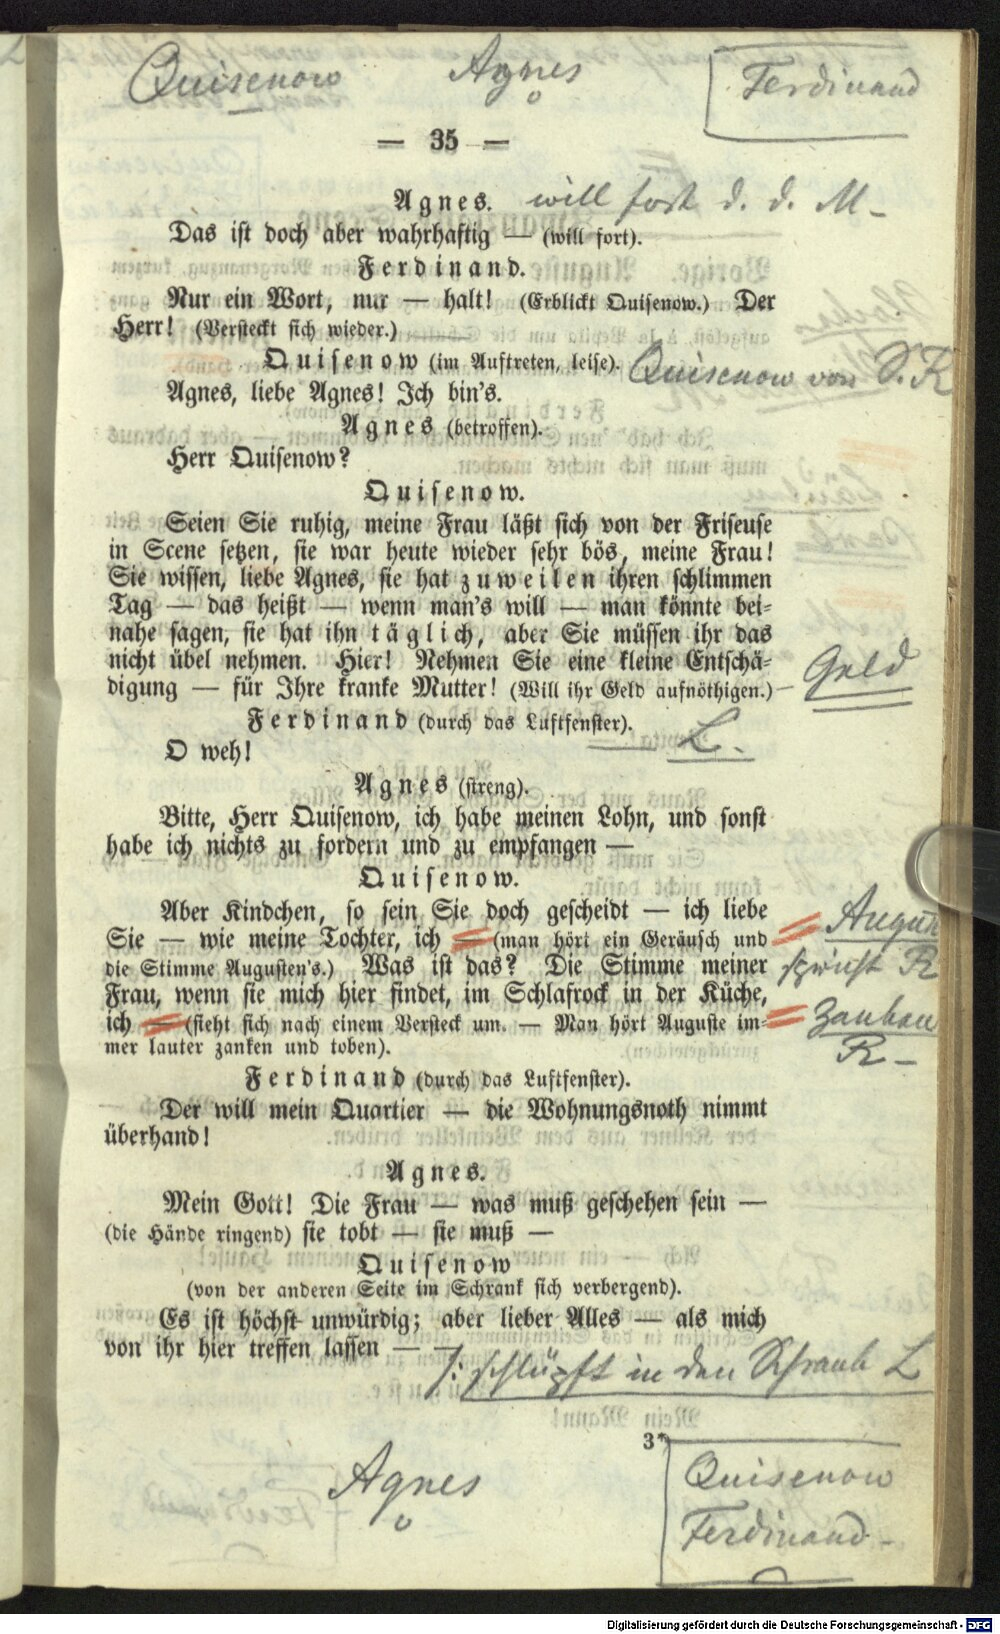 Quisenow Agnes Ferdinand
— 35 —
Agnes. will fort d. d. M –
Das ist doch aber wahrhaftig — (will fort).
Ferdinand.
Nur ein Wort, nur — halt! (Erblickt Quisenow.) Der
Herr! (Versteckt sich wieder.)
Quisenow (im Auftreten, leise). Quisenow von S. R
Agnes, liebe Agnes! Ich bin's.
Agnes (betroffen).
Herr Quisenow?
Quisenow.
Seien Sie ruhig, meine Frau läßt sich von der Friseuse
in Scene setzen, sie war heute wieder sehr bös, meine Frau!
Sie wissen, liebe Agnes, sie hat zuweilen ihren schlimmen
Tag — das heißt — wenn man's will — man könnte bei=
nahe sagen, sie hat ihn täglich, aber Sie müssen ihr das
nicht übel nehmen. Hier! Nehmen Sie eine kleine Entschä=
digung — für Ihre kranke Mutter! (Will ihr Geld aufnöthigen.) – Geld
Ferdinand (durch das Luftfenster).
O weh! L.
Agnes (streng).
Bitte, Herr Quisenow, ich habe meinen Lohn, und sonst
habe ich nichts zu fordern und zu empfangen —
Quisenow.
Aber Kindchen, so sein Sie doch gescheidt — ich liebe
Sie — wie meine Tochter, ich — (man hört ein Geräusch und
die Stimme Augusten's.) Was ist das? Die Stimme meiner spricht R
Frau, wenn sie mich hier findet, im Schlafrock in der Küche,
ich — (sieht sich nach einem Versteck um. — Man hört Auguste im= Zanken
mer lauter zanken und toben). R –
Ferdinand (durch das Luftfenster).
Der will mein Quartier — die Wohnungsnoth nimmt
überhand!
Agnes.
Mein Gott! Die Frau — was muß geschehen sein —
(die Hände ringend) sie tobt — sie muß —
Quisenow
(von der anderen Seite im Schrank sich verbergend).
Es ist höchst unwürdig; aber lieber Alles — als mich
von ihr hier treffen lassen — —
/: schlüpft in den Schrank L
3*
Agnes
Quisenow
Ferdinand –
Digitalisierung gefördert durch die Deutsche Forschungsgemeinschaft - DFG